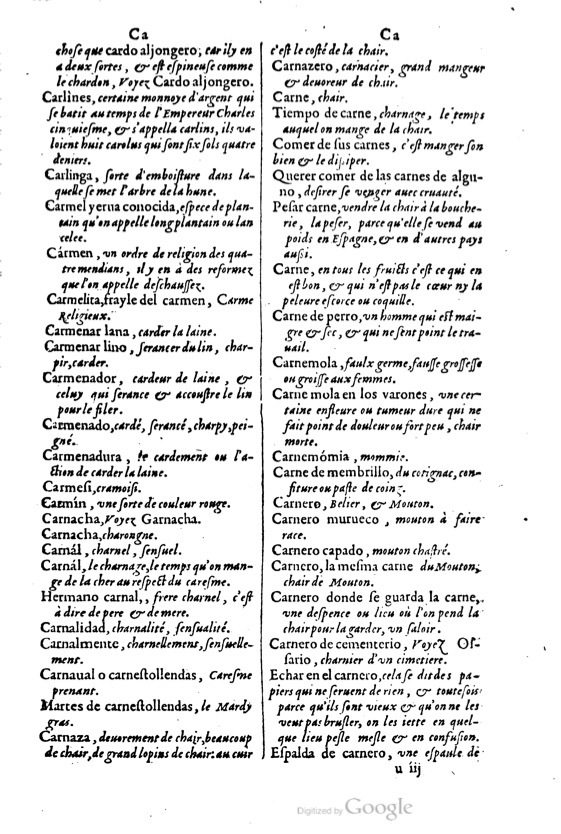 Ca
chose que cardo aljongero; car il y en
a deux sortes, & est espineuse comme
le chardon, Voyez Cardo aljongero.
Carlines, certaine monnoye d'argent qui
se batit au temps de l'Empereur Charles
cinquiesme, & s'appella carlins, ils va-
loient huit carolus qui sont six sols quatre
deniers.
Carlinga, sorte d'emboisture dans la-
quelle se met l'arbre de la hune.
Carmel yerua conocida, espece de plan-
tain qu'on appelle long plantain ou lan
celee.
Cármen, vn ordre de religion des qua-
tre mendians, il y en à des reformez
que l'on appelle deschaussez.
Carmelita, frayle del carmen, Carme
Religieux.
Carmenar lana, carder la laine.
Carmenar lino, serancer du lin, char-
pir, carder.
Carmenador, cardeur de laine, &
celuy qui serance & accoustre le lin
pour le filer.
Carmenado, cardé, serancé, charpy, pei-
gné.
Carmenadura, le cardement ou l'a-
ction de carder la laine.
Carmesi, cramoisi.
Carmín, vne sorte de couleur rouge.
Carnacha, Voyez Garnacha.
Carnacha, charongne.
Carnál, charnel, sensuel.
Carnál, le charnage, le temps qu'on man-
ge de la cher au respect du caresme.
Hermano carnal,, frere charnel, c'est
à dire de pere & de mere.
Carnalidad, charnalité, sensualité.
Carnalmente, charnellement, sensuelle-
ment.
Carnaual o carnestollendas, Caresme
prenant.
Martes de carnestollendas, le Mardy
gras.
Carnaza, deuorement de chair, beaucoup
de chair, de grand lopins de chair: au cuir
Ca
c'est le costé de la chair.
Carnazero, carnacier, grand mangeur
& deuoreur de chair.
Carne, chair.
Tiempo de carne, charnage, le temps
auquel on mange de la chair.
Comer de sus carnes, c'est manger son
bien & le dissiper.
Querer comer de las carnes de algu-
no, desirer se venger auec cruauté.
Pesar carne, vendre la chair à la bouche-
rie, la peser, parce qu'elle se vend au
poids en Espagne, & en d'autres pays
aussi.
Carne, en tous les fruicts c'est ce qui en
est bon, & qui n'est pas le cœur ny la
peleure escorce ou coquille.
Carne de perro, vn homme qui est mai-
gre & sec, & qui ne sent point le tra-
uail.
Carnemola, faulx germe, fausse grossesse
ou groisse aux femmes.
Carne mola en los varones, vne cer-
taine enfleure ou tumeur dure qui ne
fait point de douleur ou fort peu, chair
morte.
Carnemómia, mommie.
Carne de membrillo, du cotignac, con-
fiture ou paste de coinz.
Carnero, Belier, & Mouton.
Carnero murueco, mouton à faire
race.
Carnero capado, mouton chastré.
Carnero, la mesma carne du Mouton,
chair de Mouton.
Carnero donde se guarda la carne,
vne despence ou lieu où l'on pend la
chair pour la garder, vn saloir.
Carnero de cementerio, Voyez Os-
sario, charnier d'vn cimetiere.
Echar en el carnero, cela se dit des pa-
piers qui ne seruent de rien, & toutesois
parce qu'ils sont vieux & qu'on ne les
veut pas brusler, on les iette en quel-
que lieu pesle mesle & en confusion.
Espalda de carnero, vne espaule de
u iij
Digitized by Google